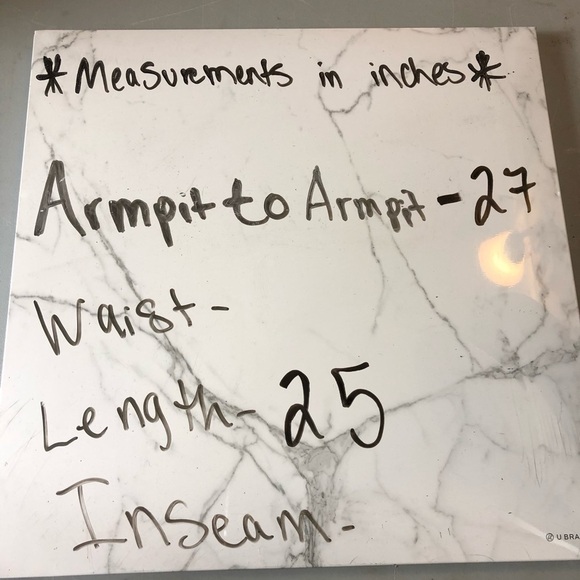 *Measurements in inches*
Armpit to Armpit - 27
Waist -
Length - 25
Inseam -
U BRA